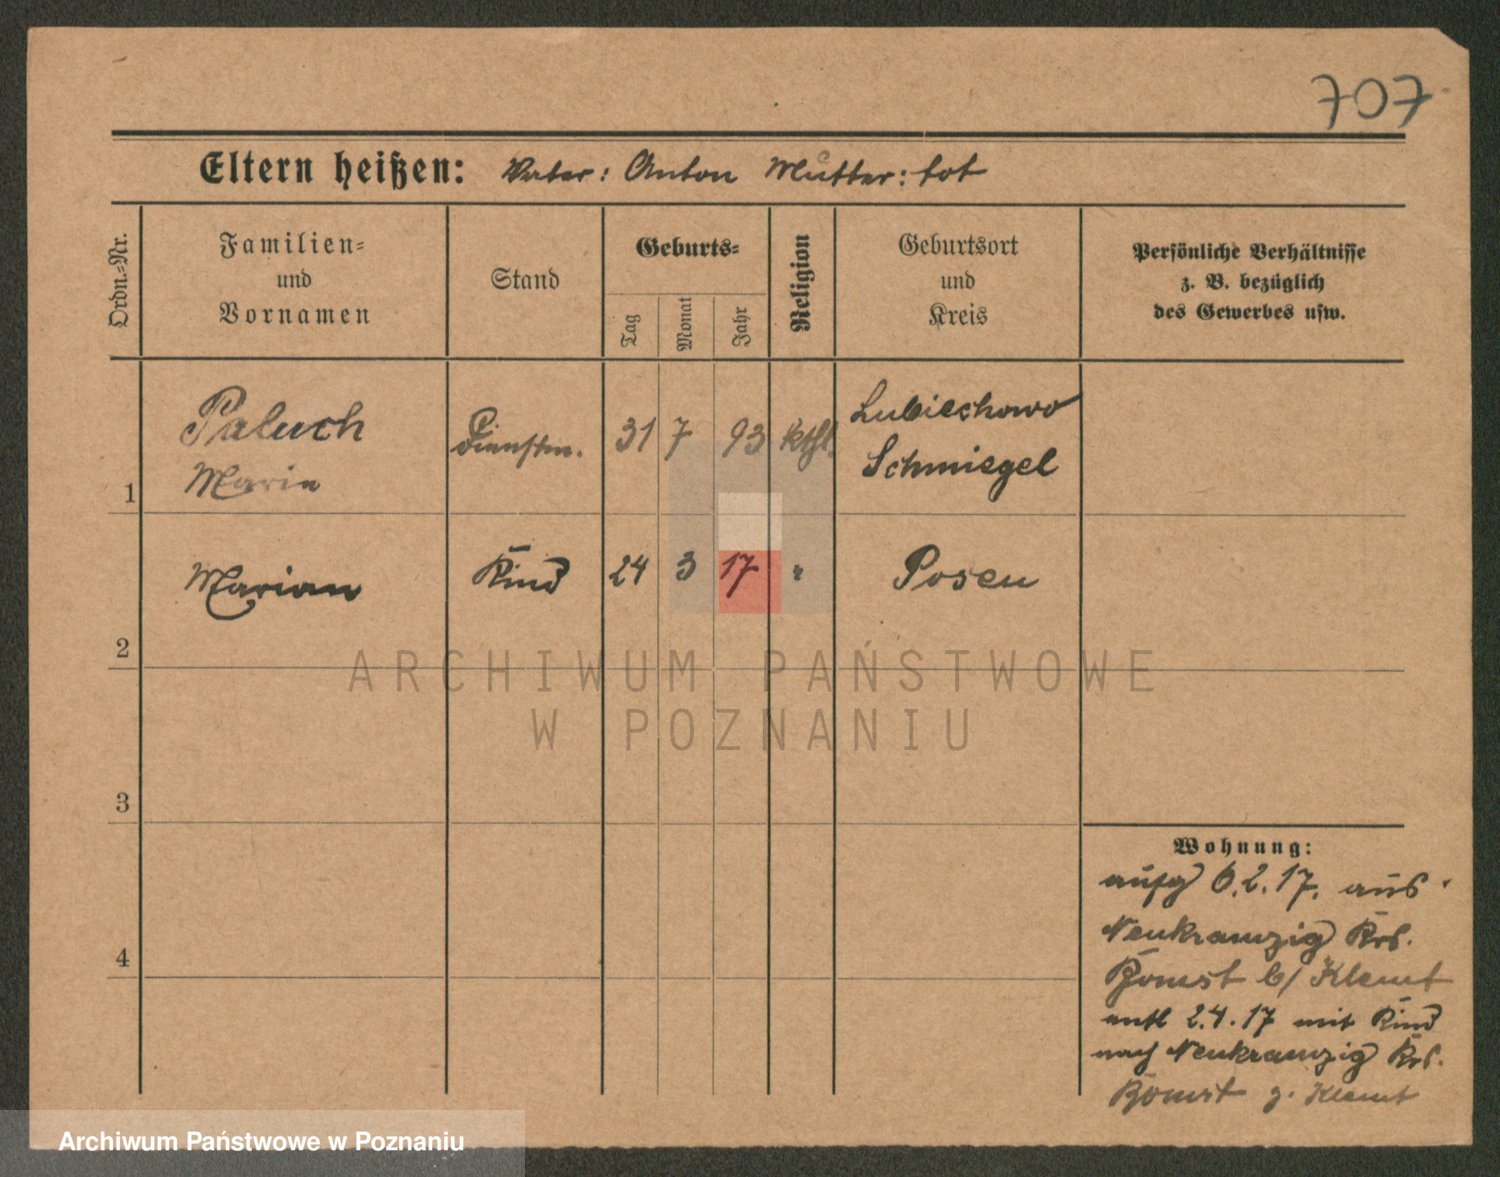 707
Eltern heißen: Vater: Anton Mutter: tot
Ordn.-Nr.
Familien- und Vornamen
Stand
Geburts-
Tag
Monat
Jahr
Religion
Geburtsort und Kreis
Persönliche Verhältnisse
z. B. bezüglich
des Gewerbes usw.
1
Paluch
Marie
Dienstm.
31 7 93
kthl.
Lubiechowo
Schmiegel
2
Marian
Kind
24 3 17
"
Posen
3
4
Wohnung:
aufg 6.2.17. aus
Neukramzig Krs.
Bomst b/ Klemt
entl 2.4.17 mit Kind
nach Neukramzig Krs.
Bomst z. Klemt
ARCHIWUM PAŃSTWOWE
W POZNANIU
Archiwum Państwowe w Poznaniu